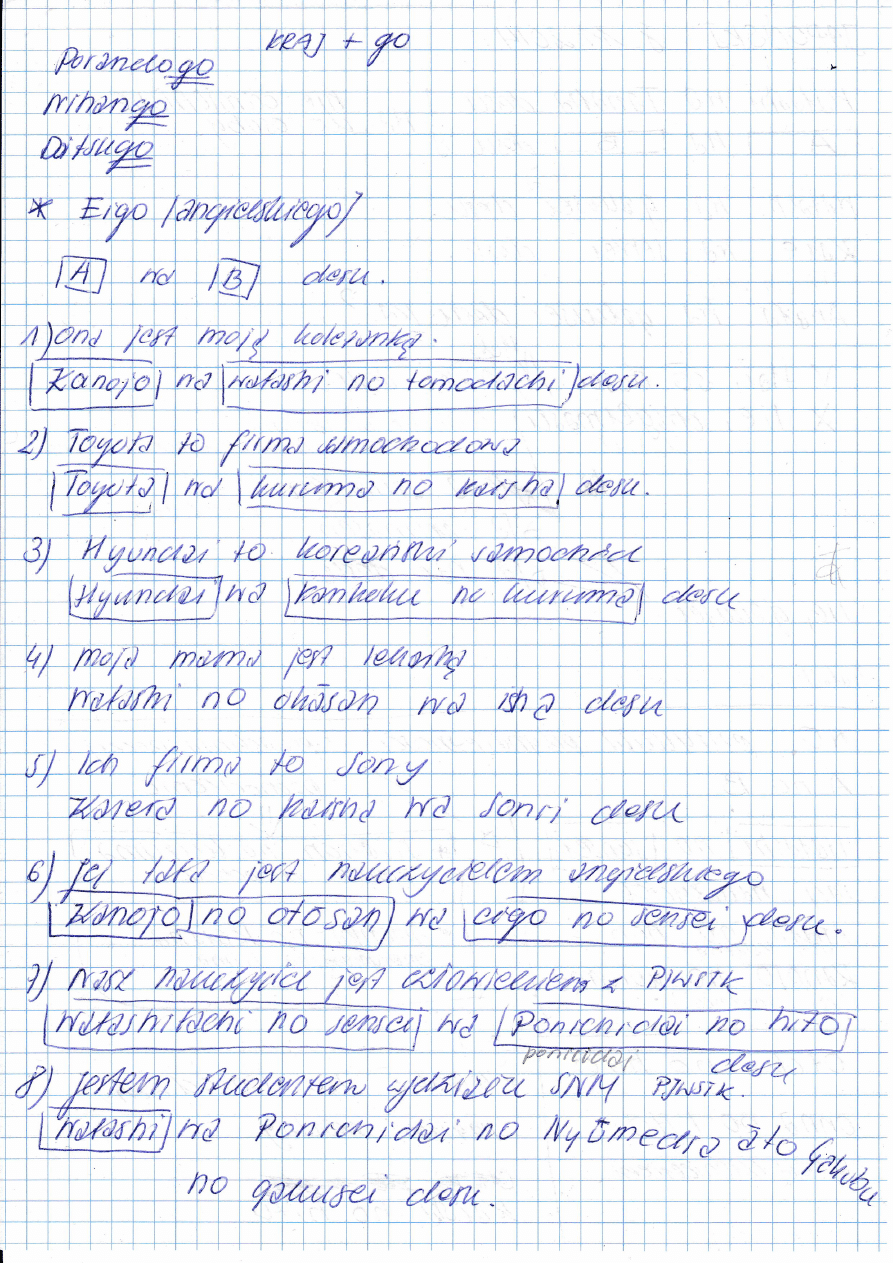 KRAJ + go
Porandogo
Nihongo
Doitsugo
* Eigo (angielskiego)
A wa B desu.
1) Ona jest moją koleżanką.
Kanojo wa watashi no tomodachi desu.
2) Toyota to firma samochodowa
Toyota wa kuruma no kaisha desu.
3) Hyundai to koreański samochód
Hyundai wa kankoku no kuruma desu
4) moja mama jest lekarką
watashi no okāsan wa isha desu
5) Ich firma to Sony
Karera no kaisha wa Sonii desu
6) Jej tata jest nauczycielem angielskiego
Kanojo no otōsan wa eigo no sensei desu.
7) Nasz nauczyciel jest człowiekiem z PJWSTK
Watashitachi no sensei wa Ponichidai no hito
ponicidai desu
8) Jestem studentem wydziału SNM PJWSTK.
Watashi wa Ponichidai no Nyūmedia āto Gakubu
no gakusei desu.